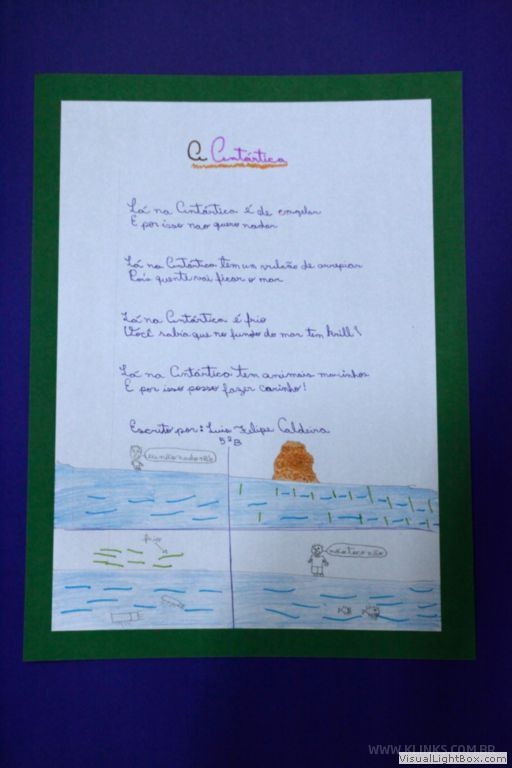 A Antártica
Lá na Antártica é de congelar
E por isso nao quero nadar
Lá na Antártica tem um vulcão de arrepiar
Pois quente vai ficar o mar
Lá na Antártica é frio
Você sabia que no fundo do mar tem krill!
Lá na Antártica tem animais marinhos
E por isso posso fazer carinho!
Escrito por: Luis Felipe Caldeira
5ºB
frio
não toco não
WWW.KLINKS.COM.BR
VisualLightBox.com